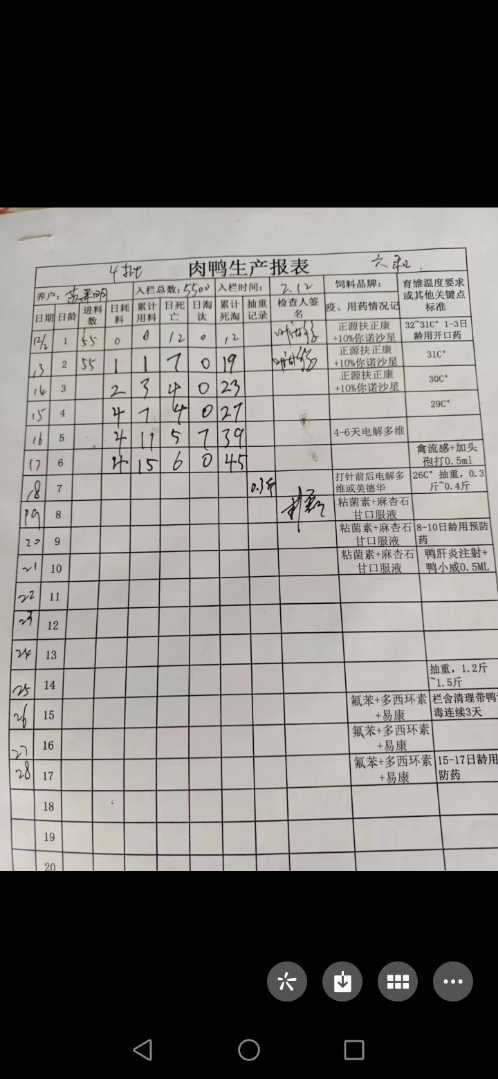 4批 肉鸭生产报表
养户: 入栏总数: 5500 入栏时间: 2.12 饲料品牌: 育雏温度要求或其他关键点标准
日期 日龄 进料数 日耗料 累计用料 日死亡 日淘汰 累计死淘 抽重记录 检查人签名 疫、用药情况记
12/2 1 55 0 0 12 0 12 正源扶正康+10%你诺沙星 32~31C° 1-3日龄用开口药
13 2 55 1 1 7 0 19 正源扶正康+10%你诺沙星 31C°
14 3 2 3 4 0 23 正源扶正康+10%你诺沙星 30C°
15 4 4 7 4 0 27 29C°
16 5 4 11 5 7 39 4-6天电解多维
17 6 4 15 6 0 45 禽流感+加头孢打0.5ml
18 7 0.3斤 打针前后电解多维或美德华 26C° 抽重，0.3斤~0.4斤
19 8 粘菌素+麻杏石甘口服液
20 9 粘菌素+麻杏石甘口服液 8-10日龄用预防药
21 10 粘菌素+麻杏石甘口服液 鸭肝炎注射+鸭小威0.5ML
22 11
23 12
24 13
25 14 抽重，1.2斤~1.5斤
26 15 氟苯+多西环素+易康 栏舍清理带鸭 毒连续3天
27 16 氟苯+多西环素+易康
28 17 氟苯+多西环素+易康 15-17日龄用 防药
18
19
20